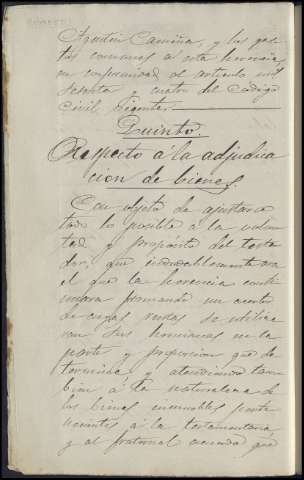 Fradin Camiña, y los gas-
tos comunes a esta herencia
en conformidad al artículo mil
sesenta y cuatro del Código
Civil Vigente.
Quinto.
Respecto á la adjudica
cion de bienes.
Con objeto de ajustarse
todo lo posible a la volun
tad y propósito del testa
dor, que indudablemente era
el que la herencia conti
nuara formando un acerbo
de cuyas rentas se utiliza
ran sus herederos en la
parte y proporcion que de
termina, y atendiendo tam
bien á la naturaleza de
los bienes inmuebles perte
necientes á la testamentaria
y al fraternal acuerdo que